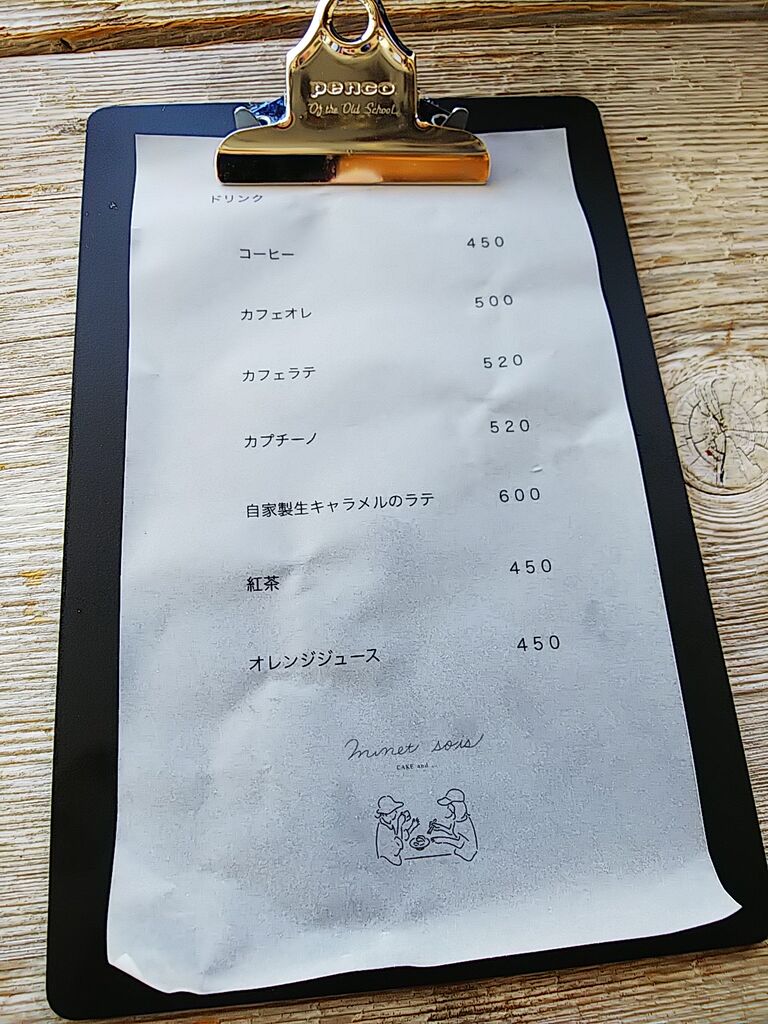 penco
Of the Old School
ドリンク
コーヒー 450
カフェオレ 500
カフェラテ 520
カプチーノ 520
自家製生キャラメルのラテ 600
紅茶 450
オレンジジュース 450
minet sous
CAKE and ..